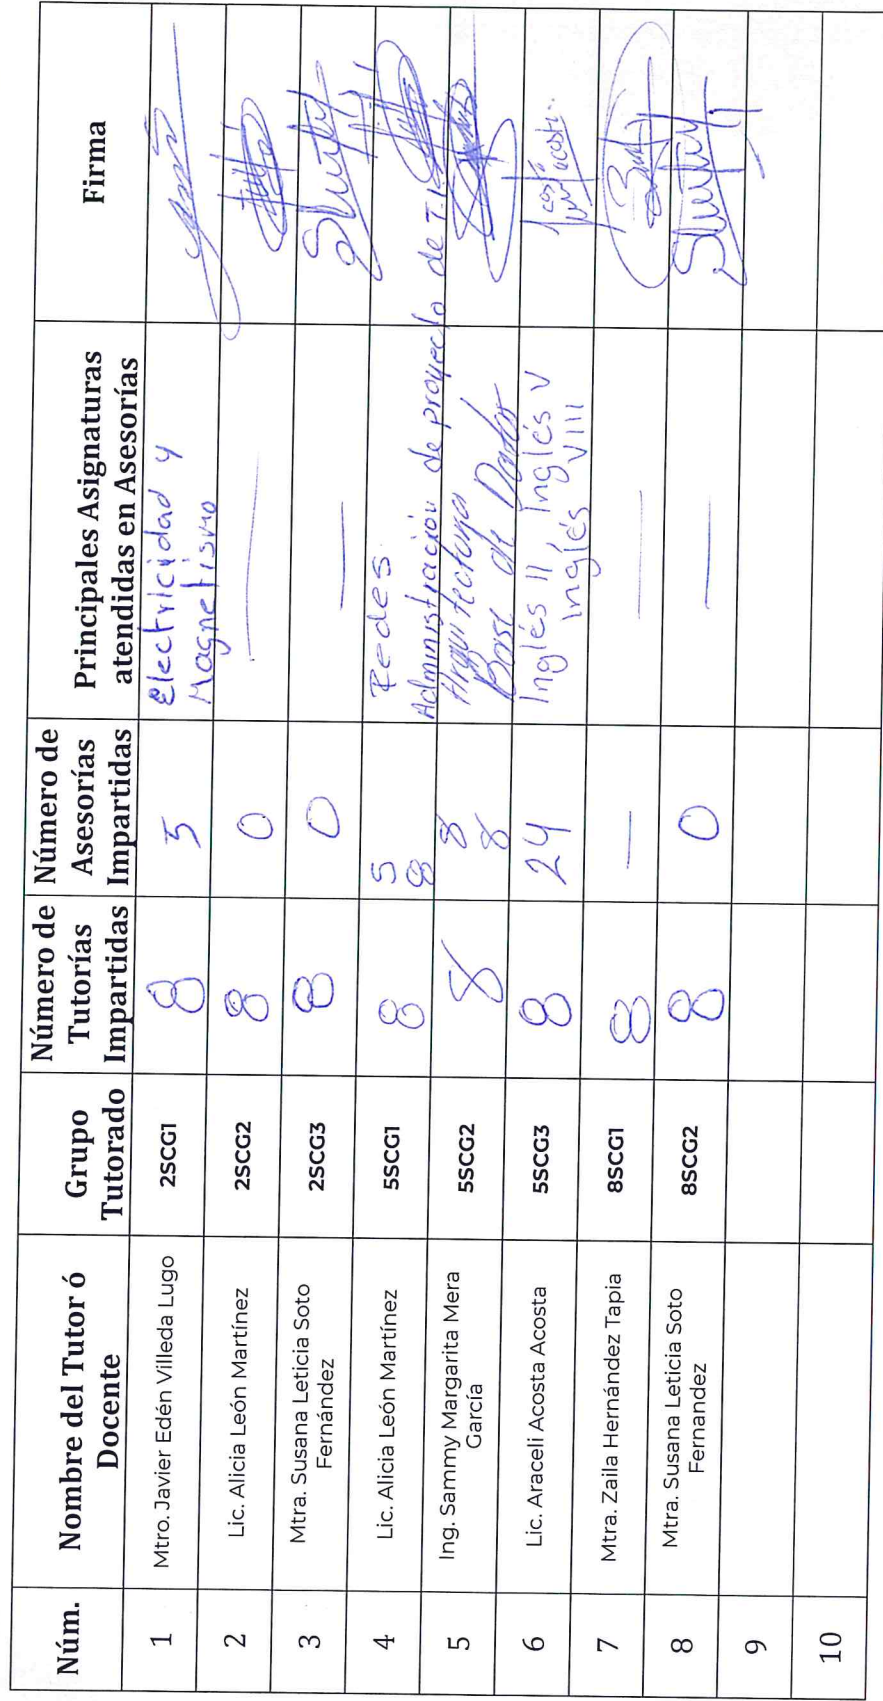 Núm. Nombre del Tutor ó Docente Grupo Tutorado Número de Tutorías Impartidas Número de Asesorías Impartidas Principales Asignaturas atendidas en Asesorías Firma
1 Mtro. Javier Edén Villeda Lugo 2SCG1 8 5 Electricidad y Magnetismo
2 Lic. Alicia León Martínez 2SCG2 8 0 —
3 Mtra. Susana Leticia Soto Fernández 2SCG3 8 0 —
4 Lic. Alicia León Martínez 5SCG1 8 5 8 Redes. Administración de proyecto de TI
5 Ing. Sammy Margarita Mera García 5SCG2 8 8 8 Arquitectura Base de Datos
6 Lic. Araceli Acosta Acosta 5SCG3 8 24 Inglés II, Inglés V Inglés VIII
7 Mtra. Zaila Hernández Tapia 8SCG1 8 — —
8 Mtra. Susana Leticia Soto Fernandez 8SCG2 8 0 —
9
10